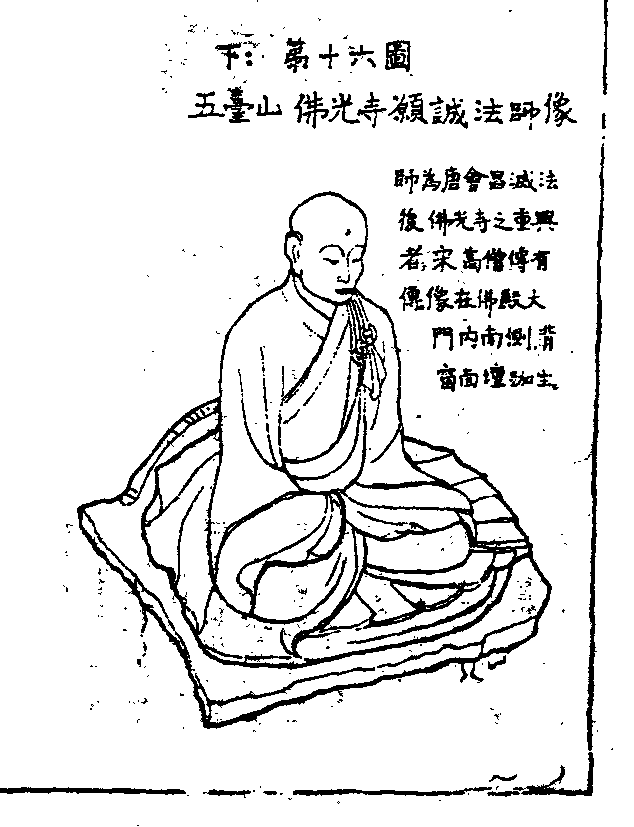 下: 第十六圖
五臺山 佛光寺願誠法師像
師為唐會昌滅法
後佛光寺之重興
者; 宋高僧傳有
傳像在佛殿大
門內南側,背
窗面壇跏坐。